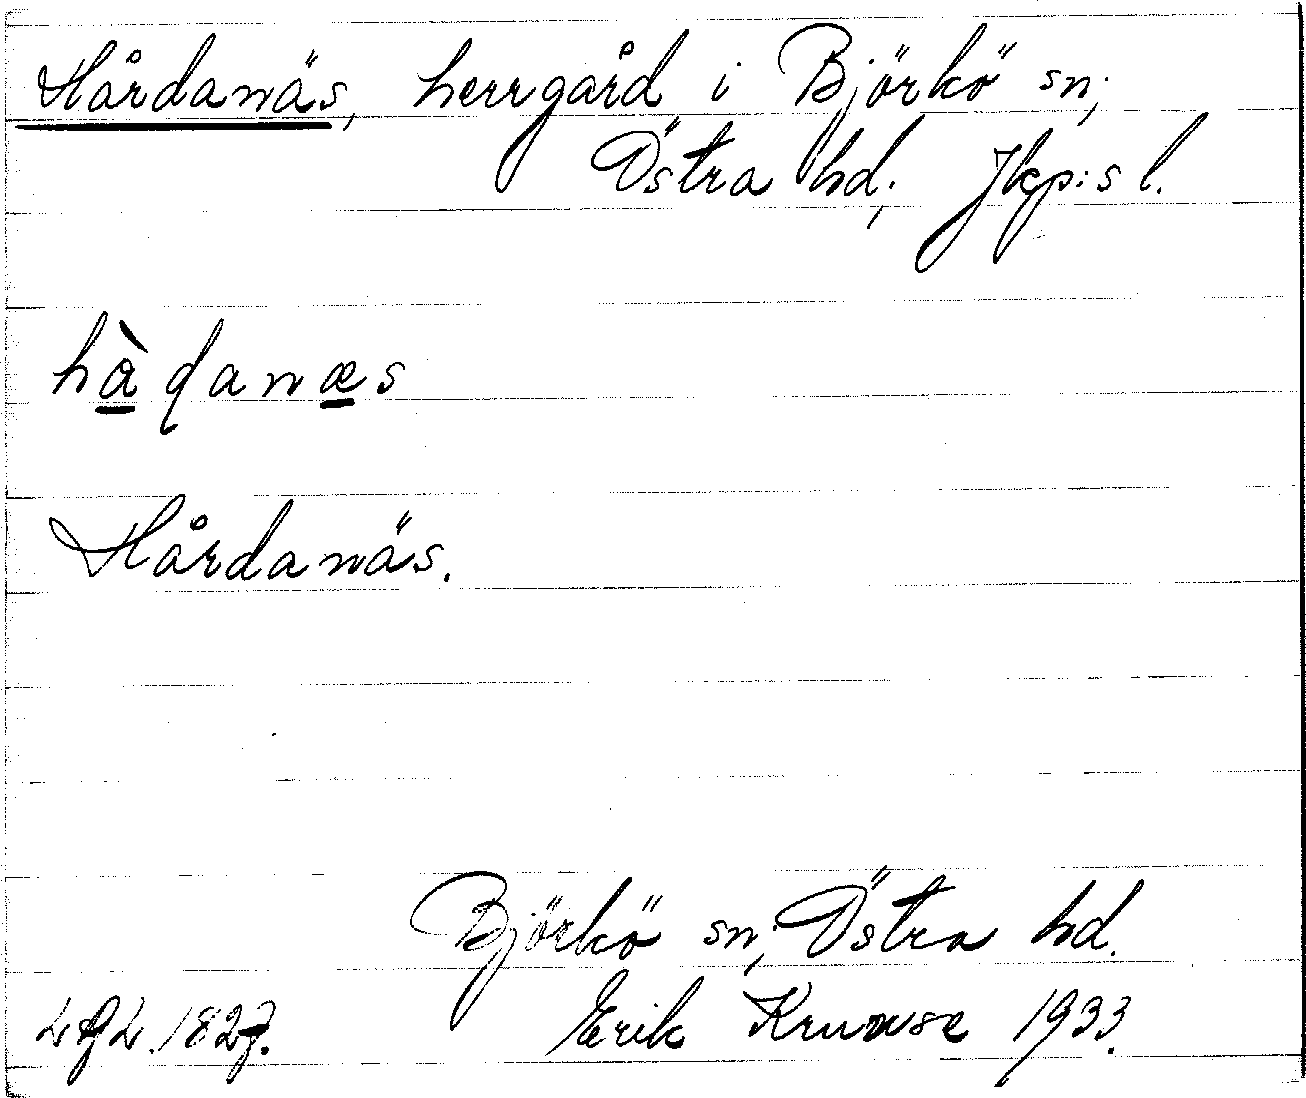 Hårdanäs, herrgård i Björkö sn,
Östra hd, Jkp:s l.
hàdanæs
Hårdanäs.
Björkö sn, Östra hd.
Erik Kruuse 1933.